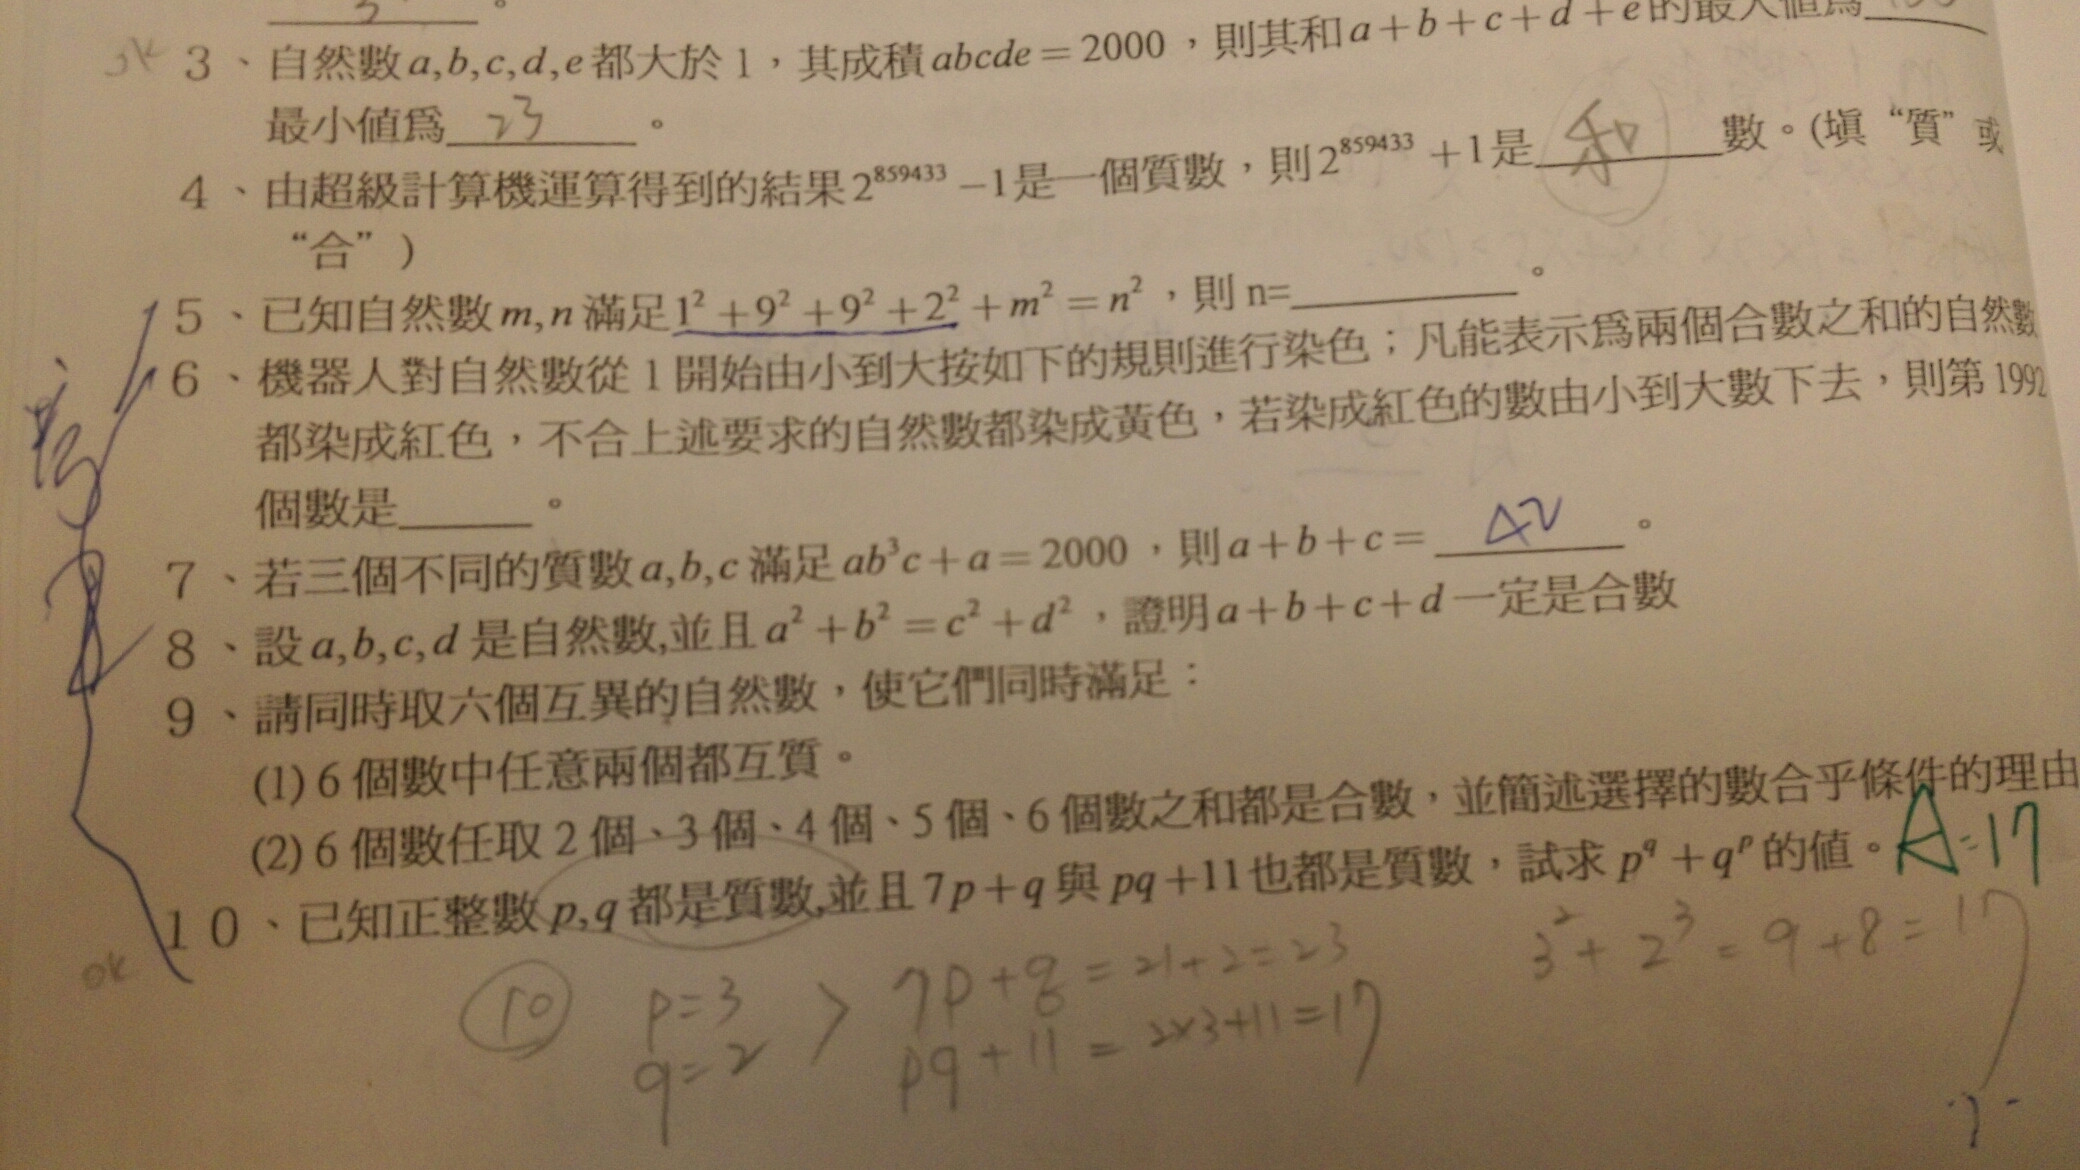 3、自然數a,b,c,d,e都大於1，其成積abcde=2000，則其和a+b+c+d+e的最大值爲
最小值爲 23 。
4、由超級計算機運算得到的結果2^859433 −1是一個質數，則2^859433 +1是 和 數。(填“質”或
“合”)
5、已知自然數m,n滿足1²+9²+9²+2²+m²=n²，則n=______。
6、機器人對自然數從1開始由小到大按如下的規則進行染色；凡能表示爲兩個合數之和的自然數
都染成紅色，不合上述要求的自然數都染成黃色，若染成紅色的數由小到大數下去，則第1992
個數是______。
7、若三個不同的質數a,b,c滿足ab³c+a=2000，則a+b+c= 42 。
8、設a,b,c,d是自然數,並且a²+b²=c²+d²，證明a+b+c+d一定是合數
9、請同時取六個互異的自然數，使它們同時滿足：
(1)6個數中任意兩個都互質。
(2)6個數任取2個、3個、4個、5個、6個數之和都是合數，並簡述選擇的數合乎條件的理由
10、已知正整數p,q都是質數,並且7p+q與pq+11也都是質數，試求p^q+q^p的值。A=17
ok
10 p=3 > 7p+q=21+2=23 3²+2³=9+8=17
q=2 pq+11=2x3+11=17